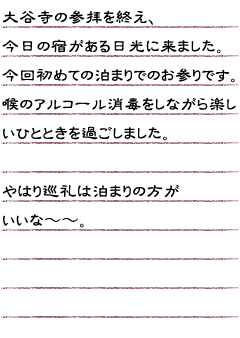 大谷寺の参拝を終え、
今日の宿がある日光に来ました。
今回初めての泊まりでのお参りです。
喉のアルコール消毒をしながら楽し
いひとときを過ごしました。
やはり巡礼は泊まりの方が
いいな～～。